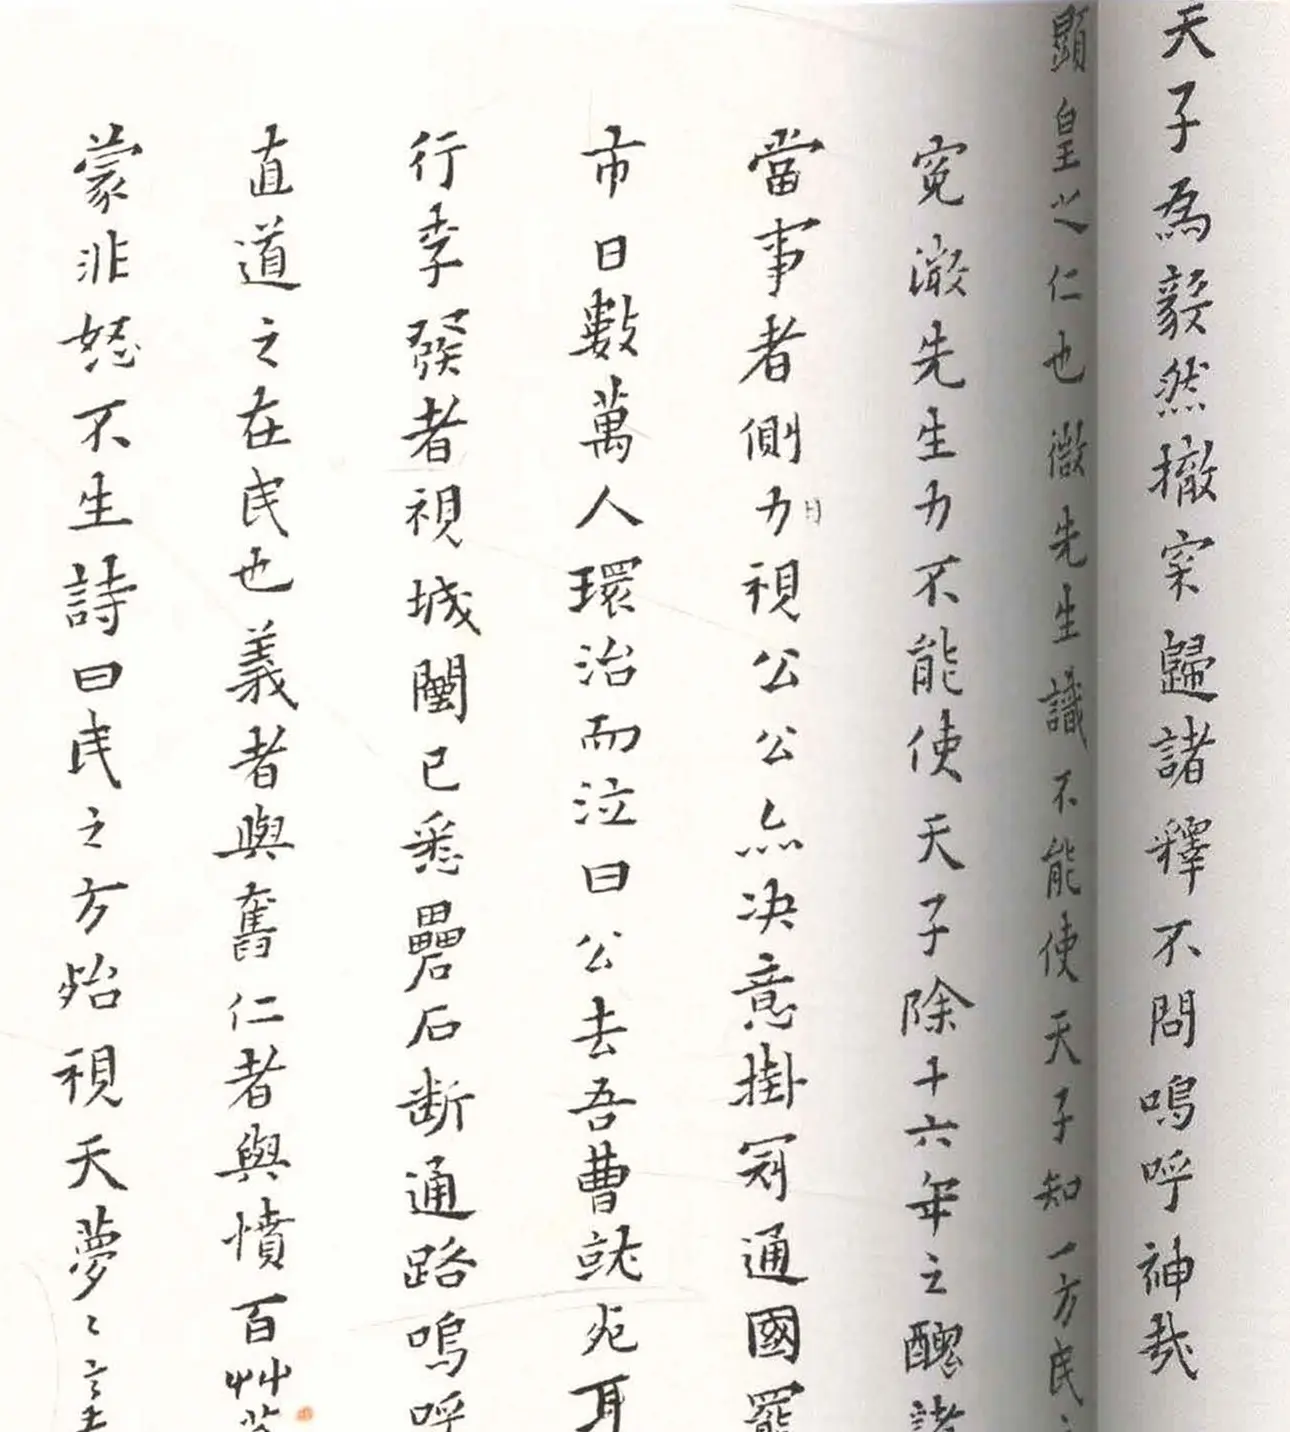 天子為毅然撤宋歸諸釋不問嗚呼神哉
顯皇之仁也微先生識不能使天子知一方民
冤微先生力不能使天子除十六年之醜諸
當事者側力目視公公亦決意掛冠通國罷
市日數萬人環治而泣曰公去吾曹就死耳
行李發者視城闉已悉礨石断通路嗚呼
直道之在民也義者與奮仁者與憤百艸
蒙非怒不生詩曰民之方殆視天夢〻